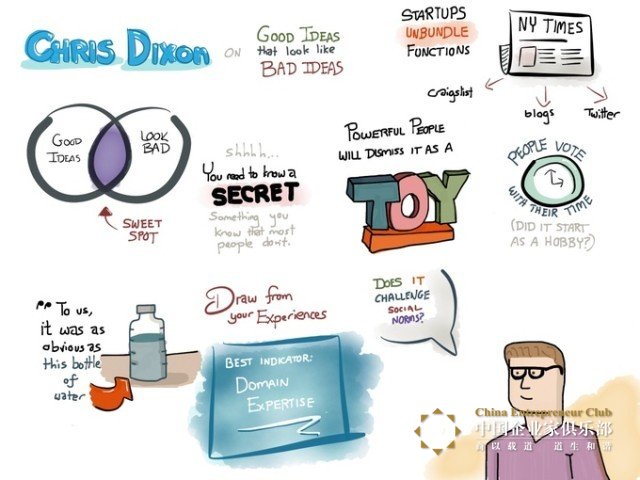 CHRIS DIXON
ON
GOOD IDEAS
that look like
BAD IDEAS
STARTUPS
UNBUNDLE
FUNCTIONS
NY TIMES
Craigslist
blogs
Twitter
GOOD
IDEAS
LOOK
BAD
SWEET
SPOT
shhhh...
You need to know a
SECRET
Something you
know that most
people don't.
POWERFUL PEOPLE
WILL DISMISS IT AS A
TOY
PEOPLE VOTE
WITH THEIR TIME
(DID IT START
AS A HOBBY?)
"To us,
it was as
obvious as
this bottle
of
water
Draw from
your Experiences
BEST INDICATOR:
DOMAIN
EXPERTISE
DOES IT
CHALLENGE
SOCIAL
NORMS?
China Entrepreneur Club
中国企业家俱乐部
商以载道 道生和谐